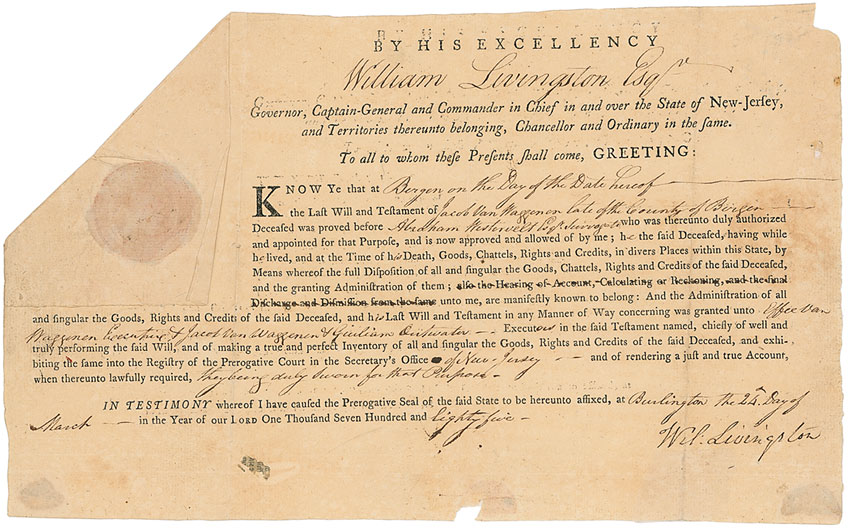 BY HIS EXCELLENCY
William Livingston Esqr
Governor, Captain-General and Commander in Chief in and over the State of New-Jersey,
and Territories thereunto belonging, Chancellor and Ordinary in the same.
To all to whom theſe Preſents ſhall come, GREETING:
KNOW Ye that at Bergen on the Day of the Date hereof
the Laſt Will and Teſtament of Jacob Van Waggenen late of the County of Bergen
Deceaſed was proved before Abraham Westervelt Esqr Surrogate who was thereunto duly authorized
and appointed for that Purpoſe, and is now approved and allowed of by me; he the ſaid Deceaſed, having while
he lived, and at the Time of his Death, Goods, Chattels, Rights and Credits, in divers Places within this State, by
Means whereof the full Diſpoſition of all and ſingular the Goods, Chattels, Rights and Credits of the ſaid Deceaſed,
and the granting Adminiſtration of them; alſo the Hearing of Account, Calculating or Reckoning, and the final
Diſcharge and Diſmiſſion from the ſame unto me, are manifeſtly known to belong: And the Adminiſtration of all
and ſingular the Goods, Rights and Credits of the ſaid Deceaſed, and his Laſt Will and Teſtament in any Manner of Way concerning was granted unto Effee Van
Waggenen Executrix & Jacob Van Waggenen & Outwater Executors in the ſaid Teſtament named, chiefly of well and
truly performing the ſaid Will, and of making a true and perfect Inventory of all and ſingular the Goods, Rights and Credits of the ſaid Deceaſed, and exhi-
biting the ſame into the Regiſtry of the Prerogative Court in the Secretary's Office of New-Jersey and of rendering a juſt and true Account,
when thereunto lawfully required, they being duly Sworn for that Purpose
IN TESTIMONY whereof I have cauſed the Prerogative Seal of the ſaid State to be hereunto affixed, at Burlington the 24th Day of
March in the Year of our LORD One Thouſand Seven Hundred and Eighty five
Wil: Livingston